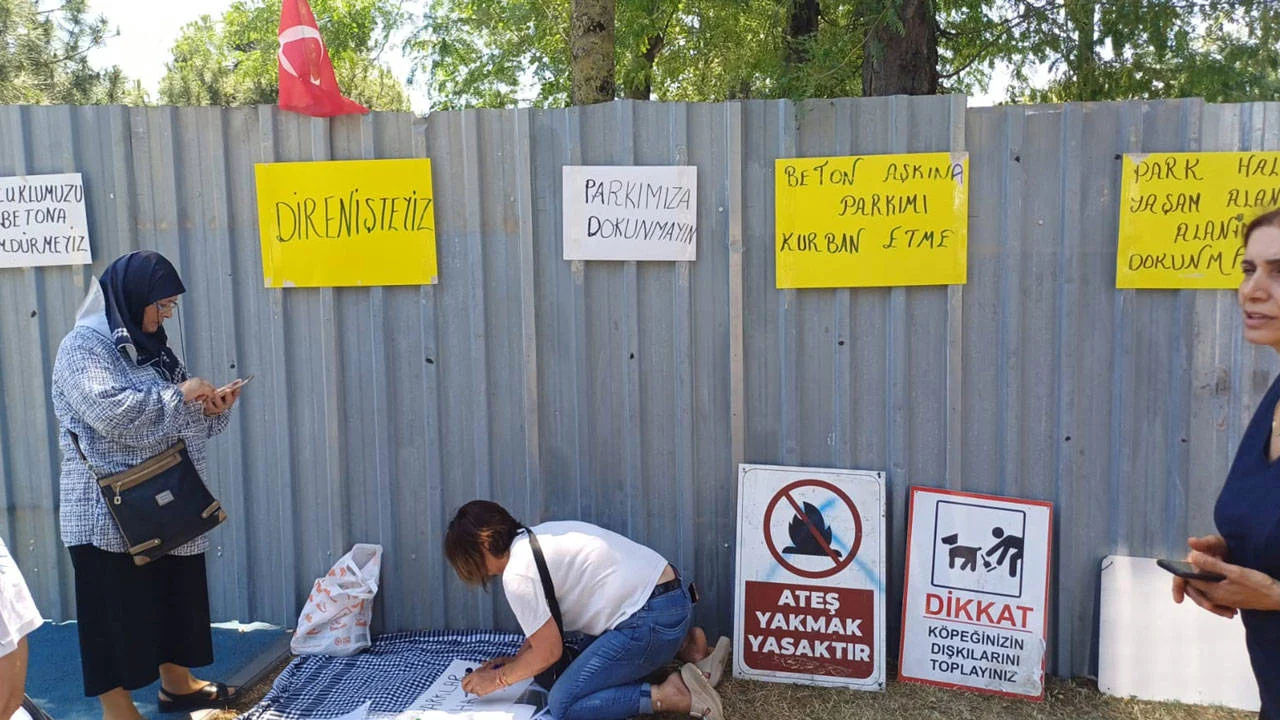 BETONA
DİRENİŞTEYİZ
PARKIMIZA
DOKUNMAYIN
BETON AŞKINA
PARKIMI
KURBAN ETME
PARK
YAŞAM
DOKUNMA
ATEŞ
YAKMAK
YASAKTIR
DİKKAT
KÖPEĞİNİZİN
DIŞKILARINI
TOPLAYINIZ